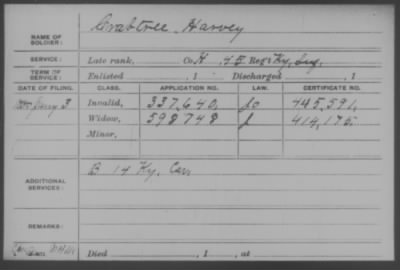 Crabtree, Harvey
NAME OF SOLDIER:
SERVICE: Late rank, Co. H. 45 Reg't Ky. Inf.
TERM OF SERVICE: Enlisted , 1 Discharged , 1
DATE OF FILING. CLASS. APPLICATION NO. LAW. CERTIFICATE NO.
Invalid, 337,640, 745,591,
Widow, 598748 414,175.
Minor,
ADDITIONAL SERVICES: B 14 Ky. Cav
REMARKS:
Died , 1 , at